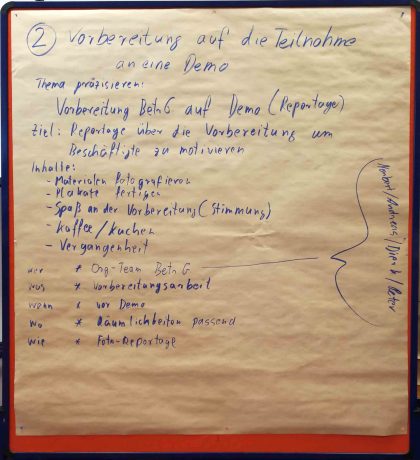 ② Vorbereitung auf die Teilnahme
an eine Demo
Thema präzisieren:
Vorbereitung BetrG auf Demo (Reportage)
Ziel: Reportage über die Vorbereitung um
Beschäftigte zu motivieren
Inhalte:
- Materialien fotografieren
- Plakate fertigen
- Spaß an der Vorbereitung (Stimmung)
- Kaffee / Kuchen
- Vergangenheit
wer * Org-Team BetrG
was * Vorbereitungsarbeit
wann * vor Demo
wo * Räumlichkeiten passend
wie * Foto-Reportage
Norbert / Andreas / Dierk / Peter